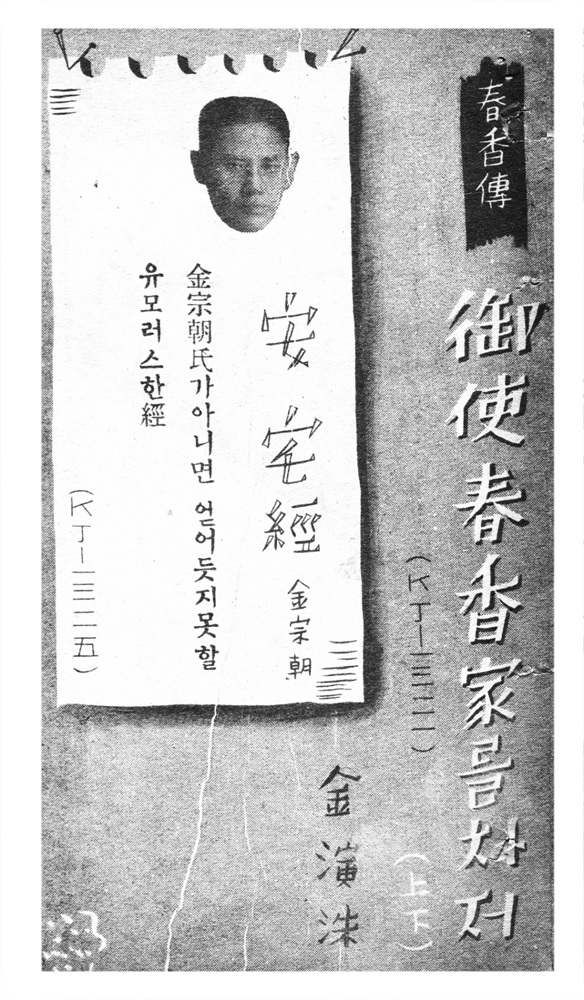 春香傳
御使春香家를차저
(上下)
(KJ-一三二一)
金演洙
安宅經 金宗朝
金宗朝氏가아니면 얻어듯지못할
유모러스한經
(KJ-一三二五)